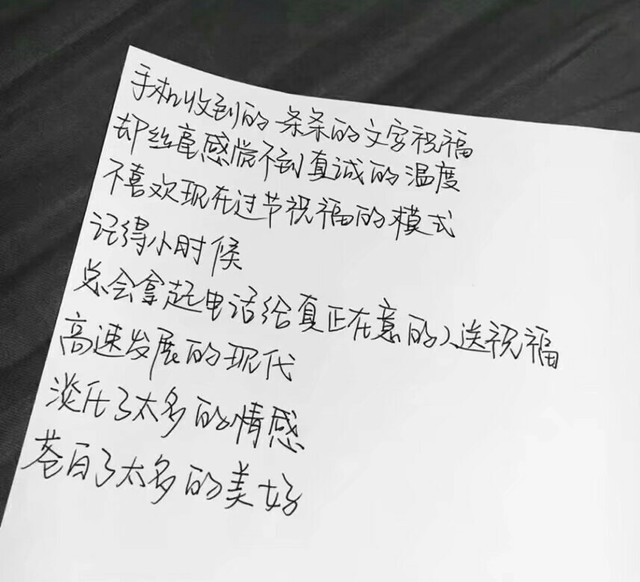 手机收到的条条的文字祝福
却丝毫感觉不到真诚的温度
不喜欢现在过节祝福的模式
记得小时候
总会拿起电话给真正在意的人送祝福
高速发展的现代
淡化了太多的情感
苍白了太多的美好